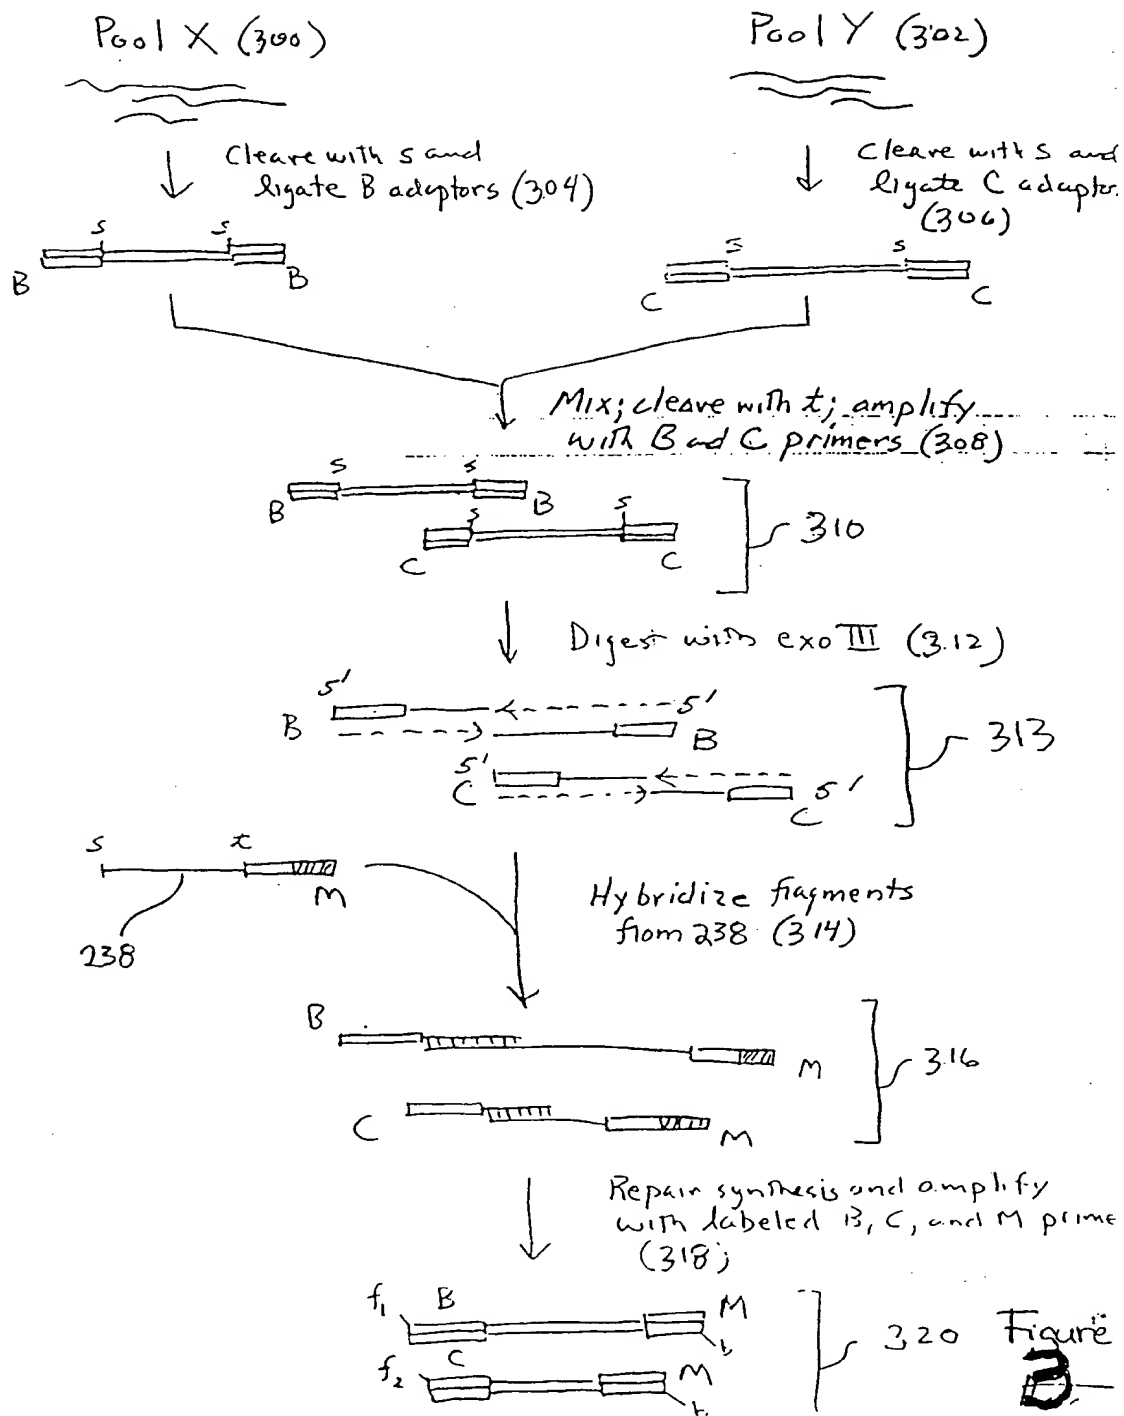 Pool X (300)
Pool Y (302)
Cleave with s and
ligate B adaptors (304)
Cleave with s and
ligate C adaptor.
(306)
s s
B B
s s
C C
Mix; cleave with t; amplify
with B and C primers (308)
s s
B B
s s
C C
310
Digest with exo III (312)
5' 5'
B B
5'
C C 5'
313
s t
M
238
Hybridize fragments
from 238 (314)
B
M
316
C
M
Repair synthesis and amplify
with labeled B, C, and M prime
(318)
f1 B M
b
C
f2 M
b
320
Figure
3